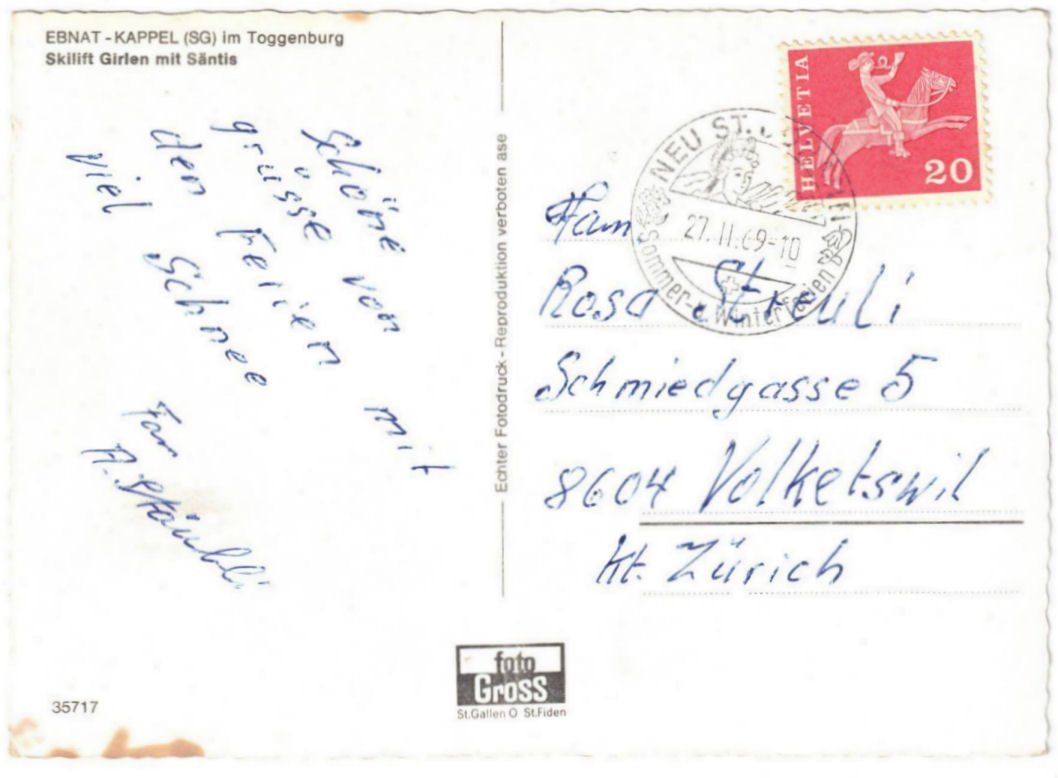 EBNAT - KAPPEL (SG) im Toggenburg
Skilift Girlen mit Säntis
Schöne
grüsse von
den Ferien mit
viel Schnee
Fam
A. Stäubli
Echter Fotodruck - Reproduktion verboten ase
HELVETIA
20
NEU ST. JOHANN
27.II.69-10
Sommer- u. Winterferien
Fam
Rosa Streuli
Schmiedgasse 5
8604 Volketswil
Kt. Zürich
foto
Gross
St.Gallen O St.Fiden
35717